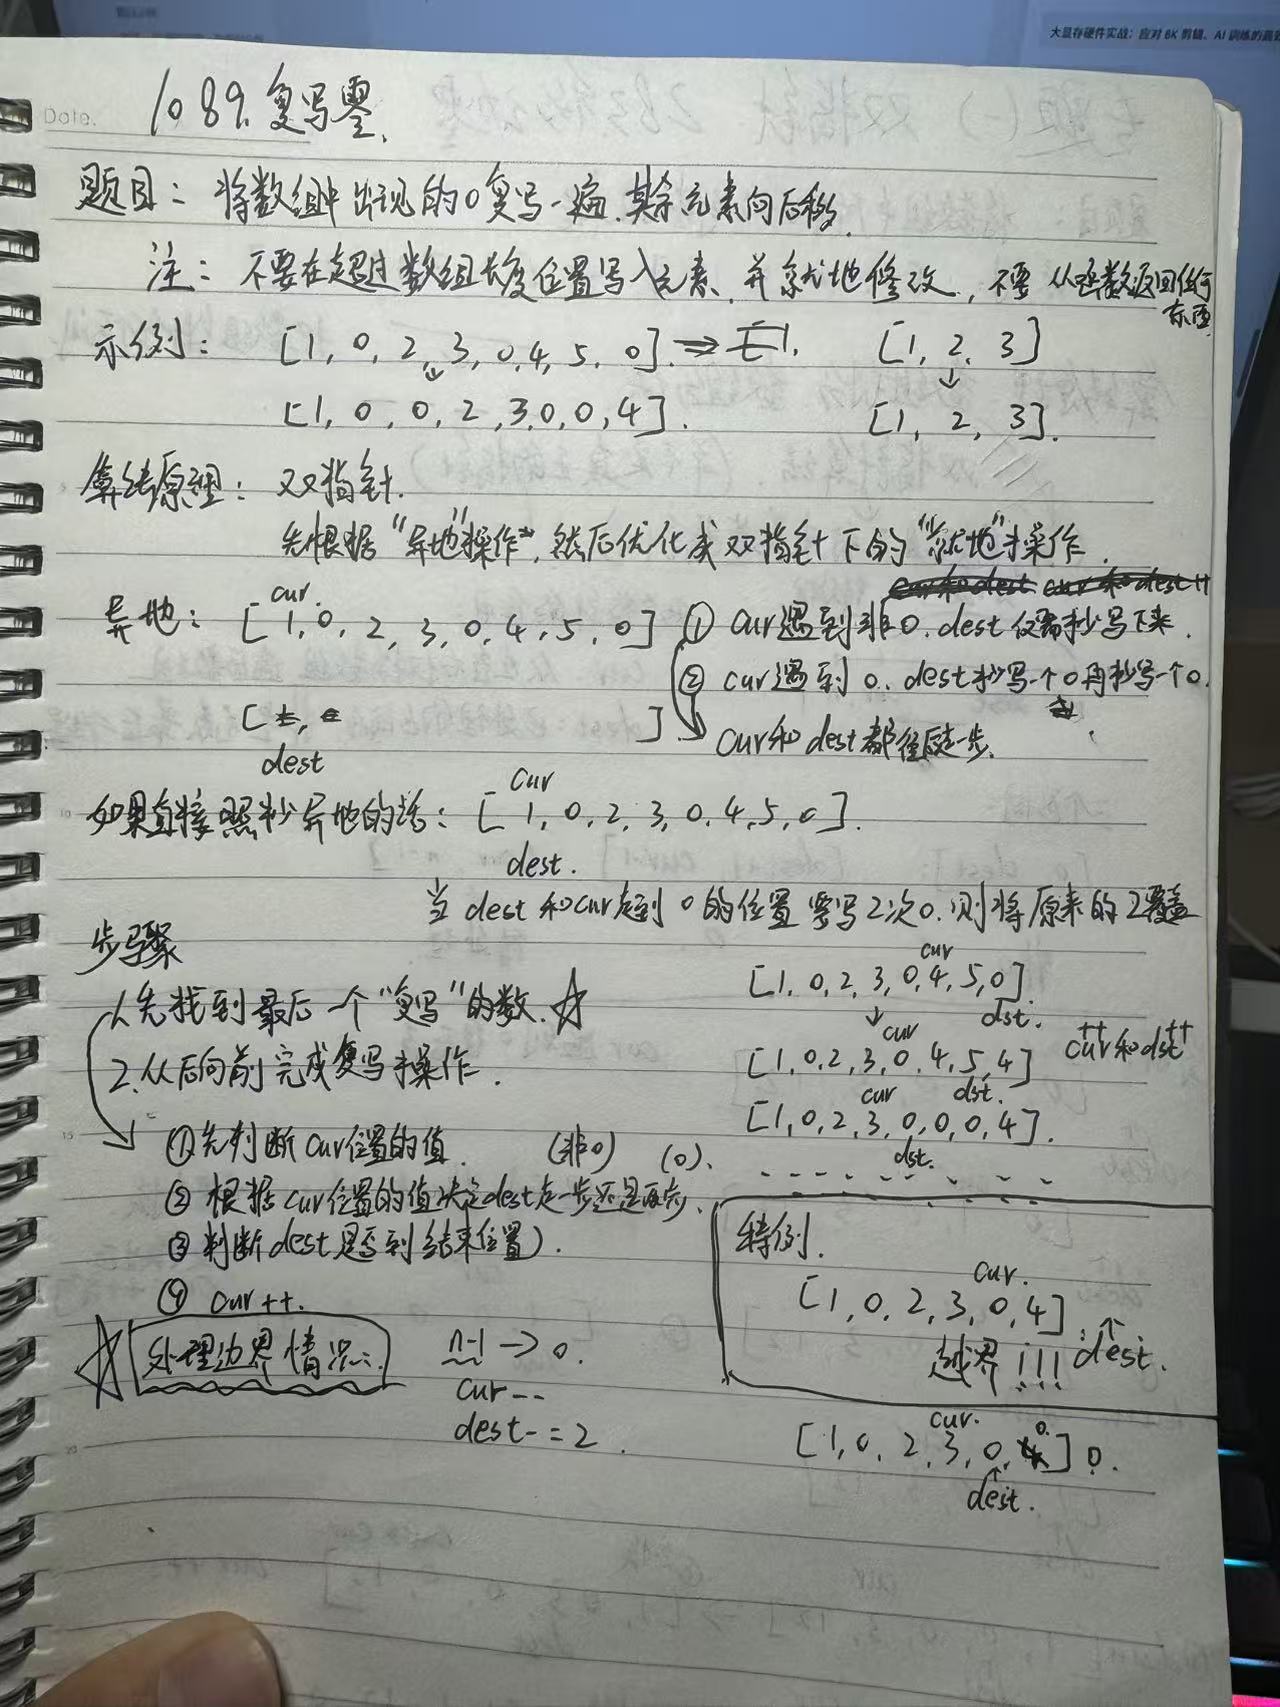 大显存硬件实战：应对 8K 剪辑、AI 训练的高效
Date.
1089. 复写零.
题目：将数组中出现的0复写一遍.其余元素向后移.
注：不要在超过数组长度位置写入元素.并就地修改，不要从函数返回任何东西.
示例：[1, 0, 2, 3, 0, 4, 5, 0]. ⇒ [1, [1, 2, 3]
↓ ↓
[1, 0, 0, 2, 3, 0, 0, 4]. [1, 2, 3].
算法原理：双指针.
先根据"异地"操作",然后优化成双指针下的"就地"操作.
cur和dest cur和dest++
cur.
异地：[1, 0, 2, 3, 0, 4, 5, 0] ① cur遇到非0.dest仅需抄写下来.
② cur遇到0.dest抄写一个0再抄写一个0.
[ , ].
cur和dest都往后走一步.
dest
cur
如果直接照抄异地的话：[1, 0, 2, 3, 0, 4, 5, 0].
dest.
当dest和cur走到0的位置要写2次0.则将原来的2覆盖
步骤
1.先找到最后一个"复写"的数.☆
2.从后向前完成复写操作.
①先判断cur位置的值. (非0) (0).
②根据cur位置的值决定dest走一步还是两步.
③判断dest是否到结束位置).
④ cur++.
☆处理边界情况:. n-1 → 0.
cur--
dest-=2.
cur
[1, 0, 2, 3, 0, 4, 5, 0].
dst.
↓ cur
[1, 0, 2, 3, 0, 4, 5, 4] cur++和dst++
cur dst.
[1, 0, 2, 3, 0, 0, 0, 4].
dst.
特例.
cur.
[1, 0, 2, 3, 0, 4]. ↑
越界!!! dest.
cur. 0.
[1, 0, 2, 3, 0, ] 0.
↑
dest.